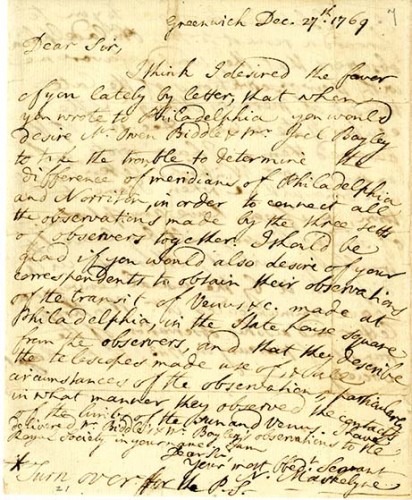 Greenwich Dec. 27th. 1769
7
Dear Sir,
I think I desired the favor
of you lately by letter, that when
you wrote to Philadelphia you would
desire Mr. Owen Biddle & Mr. Joel Bayley
to take the trouble to determine the
difference of meridians of Philadelphia
and Norriton, in order to connect all
the observations made by the three setts
of observers together. I should be
glad if you would also desire of your
correspondents to obtain their observations
of the transit of Venus &c. made at
Philadelphia, in the State house square
from the observers, and that they describe
the telescopes made use of, & the
circumstances of the observations, particularly
in what manner they observed the contacts
of the limbs of the sun and Venus. I have
delivered Mr. Biddle's & Mr. Bayley's observations to the
Royal Society in your name. I am
Dear Sir
Your most obedt. Servant
N. Maskelyne
Turn over for the P.S.